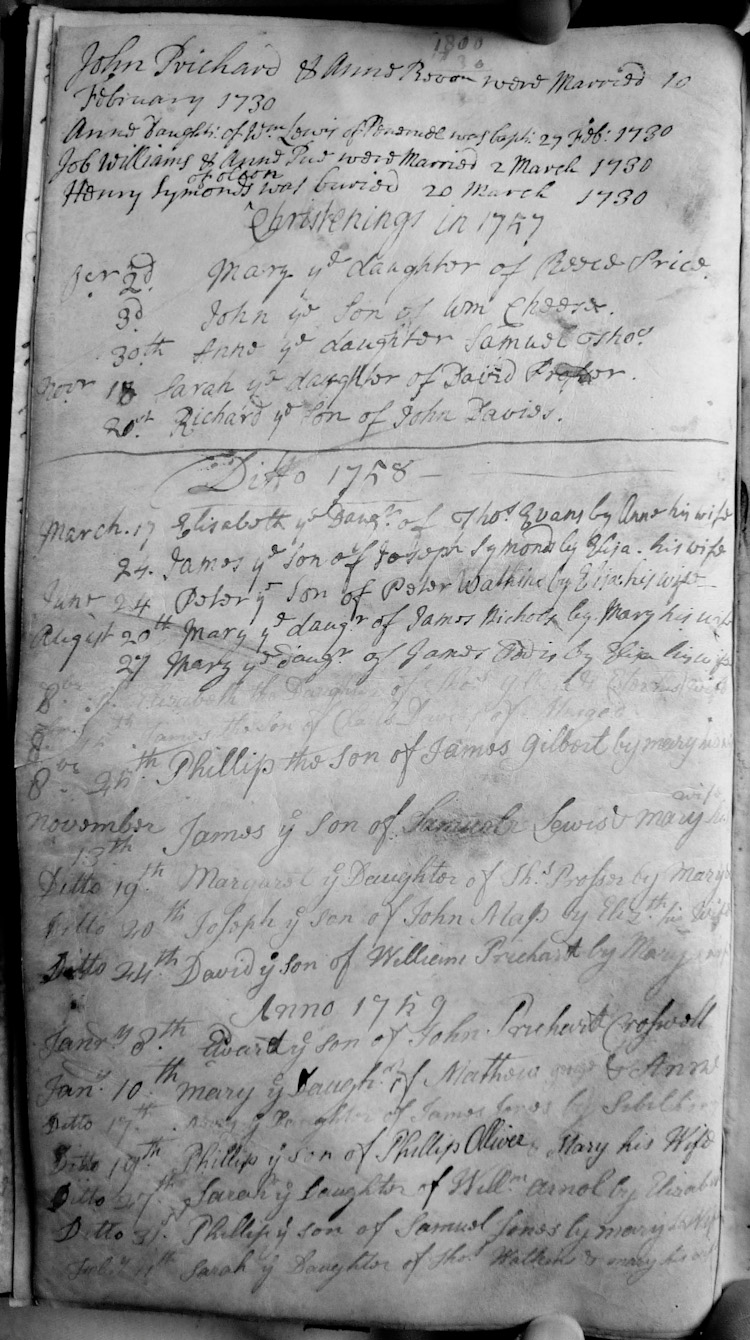 1800
John Prichard & Anne Bevon were Married 10
February 1730
Anne Daught: of Wm Lewis of was bapt: 27 Feb: 1730
Job Williams & Anne Pue were Married 2 March 1730
Henry Symonds of was buried 20 March 1730
Christenings in 1757
2d Mary ye daughter of Reece Price.
3d John ye Son of Wm Cheese.
30th Anne ye daughter Samuel Thos
Novr 18 Sarah ye daughter of David Prosser.
20st Richard ye Son of John Davies.
Ditto 1758
March. 17 Elisabeth ye Daugr of Thos Evans by Anne his wife
24. James ye Son of Joseph Symonds by Eliza. his wife
June 24 Peter ye Son of Peter Watkins by Eliza his wife
August 20th Mary ye daugr of James Nichols by Mary his wife
27 Mary ye daugr of James by Eliza his wife
8br Elizabeth the Daughter of Thos wife
8br James the Son of
8br 25th Phillip the Son of James Gilbert by mary his
wife
November James ye Son of Samuele Lewis & mary his
13th
Ditto 19th Margaret ye Daughter of Ths Prosser by Mary
Ditto 20th Joseph ye Son of John by Elizth his Wife
Ditto 24th David ye son of William Prichard by Mary
Anno 1759
Janry 8th Edward ye son of John Prichard Croswell
Jany 10th mary ye Daughtr of Mathew & Anne
Ditto 17th ye Daughter of James Jones by
Ditto 19th Phillip ye son of Phillip Olliver Mary his Wife
Ditto 27th Sarah ye Daughter of Willm arnol by Elizab
Ditto 31. Phillip ye son of Samuel Jones by mary his Wife
Sarah ye Daughter of Thos Watkins & mary his wife